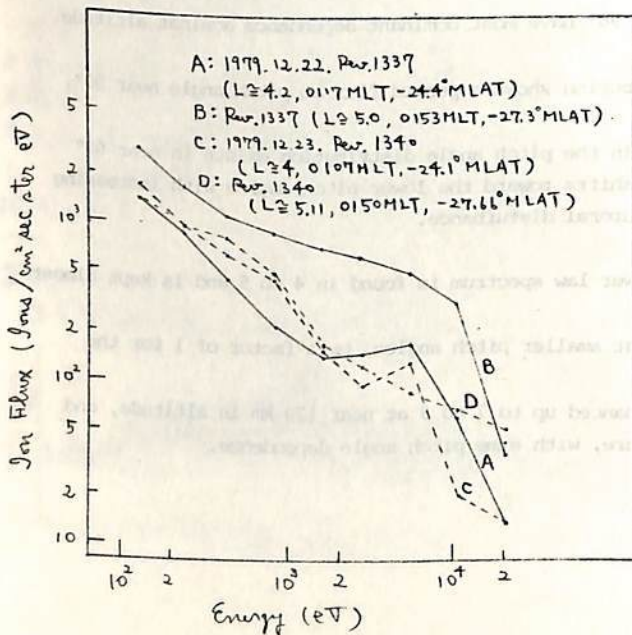 A: 1979.12.22. Rev.1337
(L≅4.2, 0117 MLT, -24.4°MLAT)
B: Rev.1337 (L≅5.0, 0153MLT, -27.3°MLAT)
C: 1979.12.23. Rev.1340
(L≅4, 0107MLT, -24.1°MLAT)
D: Rev.1340
(L≅5.11, 0150MLT, -27.66°MLAT)
Ion Flux (Ions/cm² sec ster eV)
5
2
10³
5
2
10²
5
2
10
B
D
A
C
10²
2
10³
2
10⁴
2
Energy (eV)